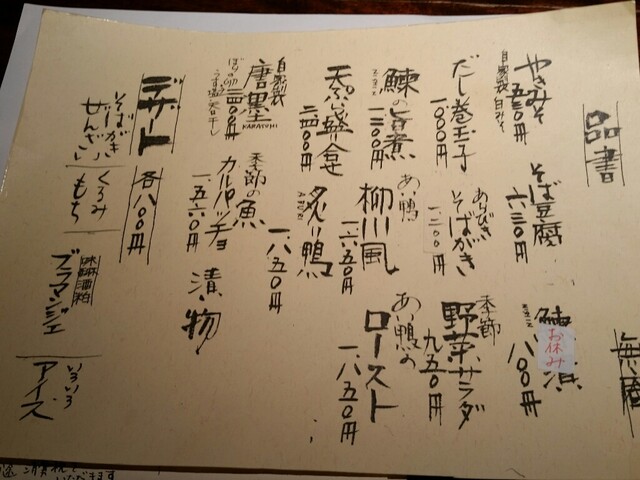 品書
無庵
やきみそ
自家製 白みそ
五五〇円
そば豆腐
六三〇円
お休み
八〇〇円
だし巻玉子
一、〇〇〇円
あらびき
そばがき
一、二〇〇円
季節
野菜サラダ
九五〇円
鰊の旨煮
あい鴨
柳川風
一、六五〇円
あい鴨の
ロースト
一、八五〇円
天ぷら盛り合せ
二、四〇〇円
炙り鴨
ABURI
一、八五〇円
自家製
唐墨
KARASUMI
季節の魚
カルパッチョ
一、五六〇円
漬物
デザート
各八〇〇円
そばがき
ぜんざい
くるみ
もち
ブラマンジェ
いろいろ
アイス
いただきます